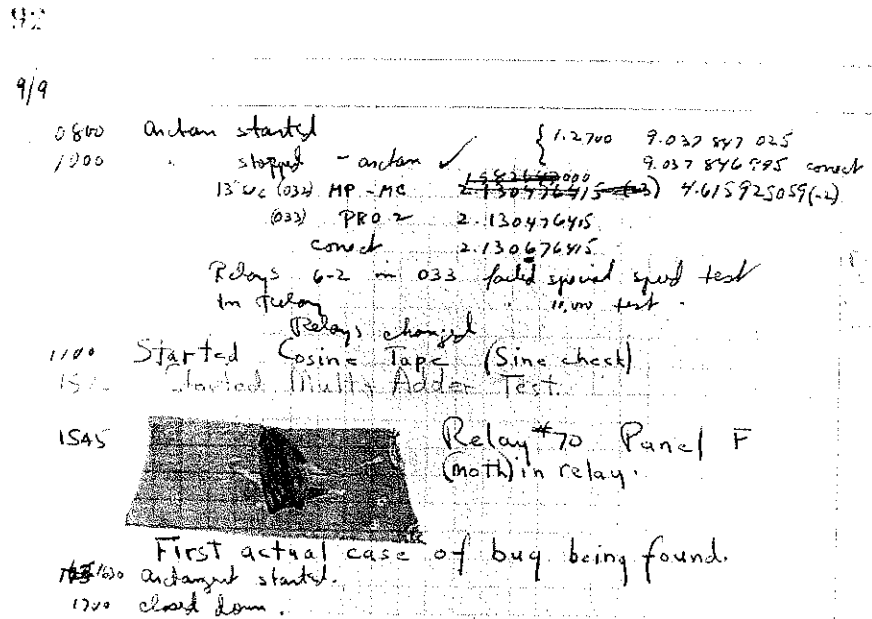 92
9/9
0800 antan started { 1.2700 9.037 847 025
1000 " stopped - antan ✓ 9.037 846 995 correct
13" uc (032) MP - MC 2.130476415 (-3) 4.615925059(-2)
(033) PRO 2 2.130476415
correct 2.130676415
Relays 6-2 in 033 failed special speed test
in relay " 10,000 test .
Relays changed
1100 Started Cosine Tape (Sine check)
Started Mult+ Adder Test.
1545 Relay #70 Panel F
(moth) in relay.
First actual case of bug being found.
1630 antangent started.
1700 closed down.